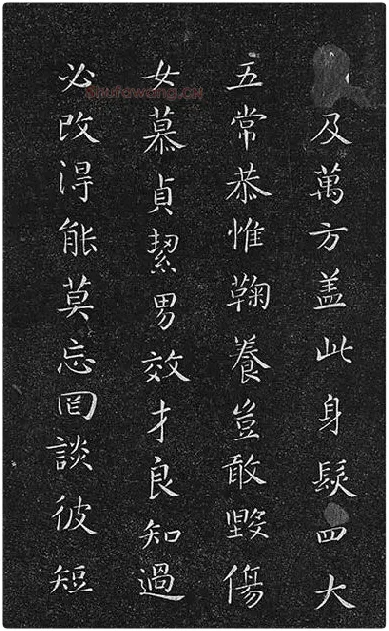 及萬方盖此身髮四大
五常恭惟鞠養豈敢毀傷
女慕貞絜男效才良知過
必改得能莫忘罔談彼短
Shufawang.cn